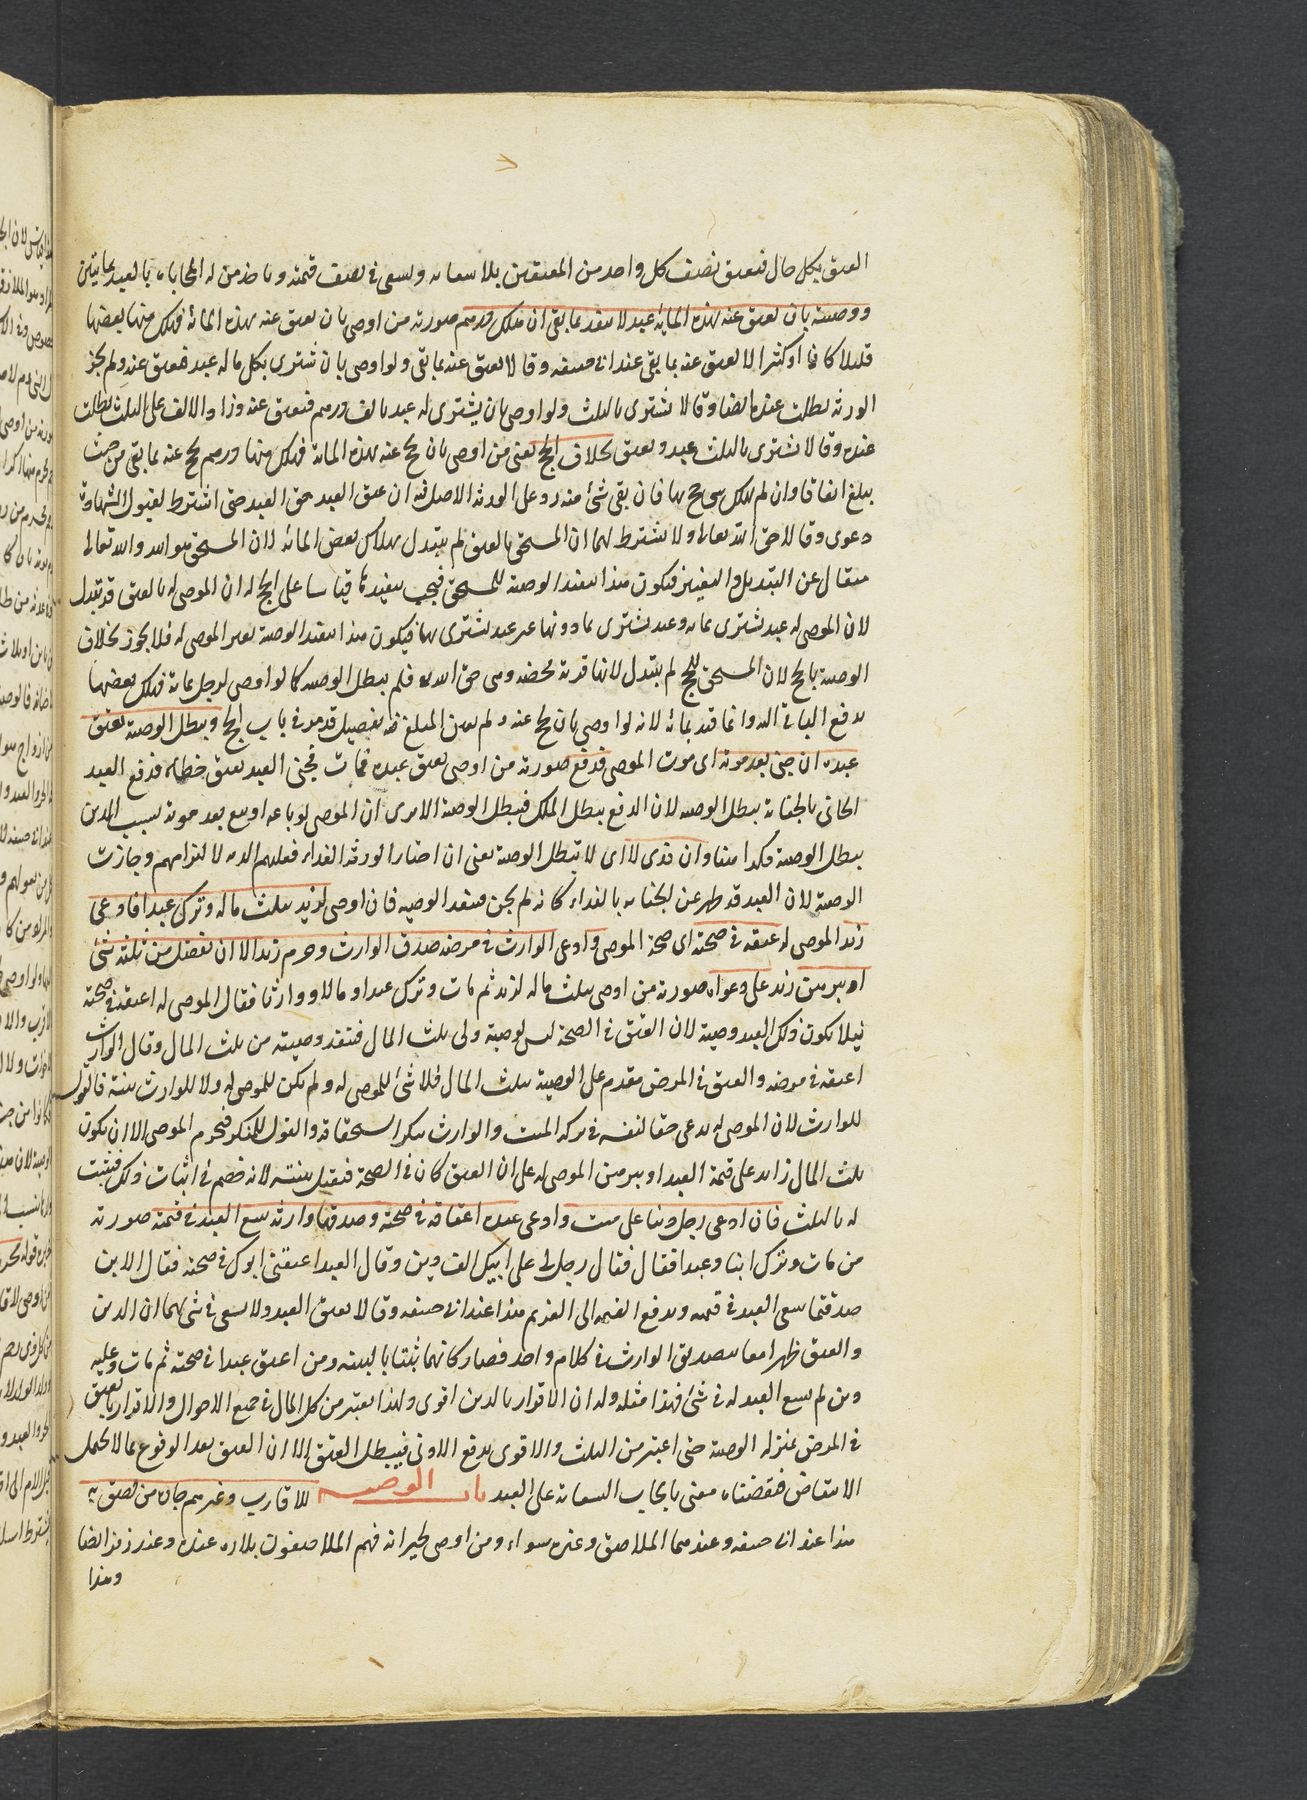 العتق بكل حال فيعتق نصف كل واحد من المعتقين بلا سعاية ويسعى في نصف قيمته وياخذ من له المحاباة بالعبد بمايتين
ووصيته بان يعتق عنه بهذه المائة عبد لا ينفذ بما بقى ان هلك درهم صورته من اوصى بان يعتق عنه بهذه المائة فهلك منها بعضها
قليلا كان او كثيرا لا يعتق عنه بما بقى عند ابى حنيفه وقالا يعتق عنه بما بقى ولو اوصى بان يشترى بكل ماله عبد فيعتق عنه ولم يجز
الورثه بطلت عنده ايضا وقالا يشترى بالثلث ولو اوصى بان يشترى له عبد بالف درهم فيعتق عنه وزاد الالف على الثلث بطلت
عنده وقالا يشترى بالثلث عبد ويعتق بخلاف الحج يعنى من اوصى بان يحج عنه بهذه المائة فهلك منها درهم يحج عنه بما بقى من حيث
يبلغ اتفاقا وان لم يهلك شى حج بها فان بقى شئ منه رد على الورثه الاصل فيه ان عتق العبد حق العبد حتى اشترط لقبول الشهادة
دعوى وقالا حق الله تعالى ولا يشترط لهما ان المستحق بالعتق لم يتبدل بهلاك بعض المائة اذ المستحق هو الله والله تعالى
متعال عن التبديل والتغيير فيكون هذا تنفيذ الوصية للمستحق فيجب تنفيذها قياسا على الحج له ان الموصى له بالعتق قد تبدل
لان الموصى له عبد يشترى بمائة وعبد يشترى بما دونها غير عبد يشترى بها فيكون هذا تنفيذ الوصية لغير الموصى له فلا يجوز بخلاف
الوصية بالحج لان المستحق للحج لم يتبدل لانها قربة محضه وهى حق الله فلم يبطل الوصية كما لو اوصى لرجل بمائة فهلك بعضها
يدفع الباقى اليه وانما قيد بمائة لانه لو اوصى بان يحج عنه ولم يعين المبلغ فيه تفصيل قد مر فى باب الحج ويبطل الوصية بعتق
عبده ان جنى بعد موته اى موت الموصى فدفع صورته من اوصى بعتق عبده فمات فجنى العبد خطاء فدفع العبد
الجانى بالجناية يبطل الوصية لان الدفع يبطل الملك فيبطل الوصية الا يرى ان الموصى لو باعه او بيع بعد موته بسبب الدين
يبطل الوصية فكذا هنا وان فدى لا اى لا تبطل الوصية يعنى ان اختار الورثه الفداء فعليهم الدية لالتزامهم وجازت
الوصية لان العبد قد طهر عن الجناية بالفداء كانه لم يجن فينفذ الوصية فان اوصى لزيد بثلث ماله وترك عبدا فادعى
زيد الموصى له عتقه في صحته اى صحة الموصى وادعى الوارث في مرضه صدق الوارث وحرم زيد الا ان يفضل من ثلثه شئ
او يبرهن زيد على دعواه صورته من اوصى بثلث ماله لزيد ثم مات وترك عبدا ومالا ووارثا فقال الموصى له اعتقه في صحته
ليلا يكون ذلك العبد وصية لان العتق في الصحة ليس بوصية ولى ثلث المال فتنفذ وصيته من ثلث المال وقال الوارث
اعتقه في مرضه والعتق في المرض مقدم على الوصية بثلث المال فلا شئ للموصى له ولم يكن للموصى له ولا للوارث بينة فالقول
للوارث لان الموصى له يدعى حقا لنفسه في تركه الميت والوارث ينكر استحقاقه والقول للمنكر فيحرم الموصى الا ان يكون
ثلث المال زايد على قيمة العبد او يبرهن الموصى له على ان العتق كان في الصحة فيقبل بينته لانه خصم في اثبات ذلك فيثبت
له بالثلث فان ادعى رجل دينا على ميت وادعى عبده اعتاقه في صحته وصدقهما وارثه سعى العبد في قيمته صورته
من مات وترك ابنا وعبدا فقال فقال رجل لى على ابيك الف دين وقال العبد اعتقنى ابوك في صحته فقال الابن
صدقتما سعى العبد في قيمته ويدفع القيمة الى الغريم هذا عند ابى حنيفه وقالا يعتق العبد ولا يسعى في شى لهما ان الدين
والعتق ظهرا معا بتصديق الوارث في كلام واحد فصار كانهما ثبتا بالبينه ومن اعتق عبدا في صحته ثم مات وعليه
دين لم يسع العبد له في شئ فهذا مثله وله ان الاقرار بالدين اقوى ولهذا يعتبر من كل المال في جميع الاحوال والاقرار بالعتق
في المرض بمنزلة الوصية حتى اعتبر من الثلث والاقوى يدفع الادنى فيبطل العتق الا ان العتق بعد الوقوع مما لا يحتمل
الانتقاض فنقضناه معنى بايجاب السعاية على العبد باب الوصيه للاقارب وغيرهم جاره من لصق به
هذا عند ابى حنيفه وعندهما الملاصق وغيره سواء ومن اوصى لجيرانه فهم الملاصقون بداره عنده وعند زفر ايضا
وهذا